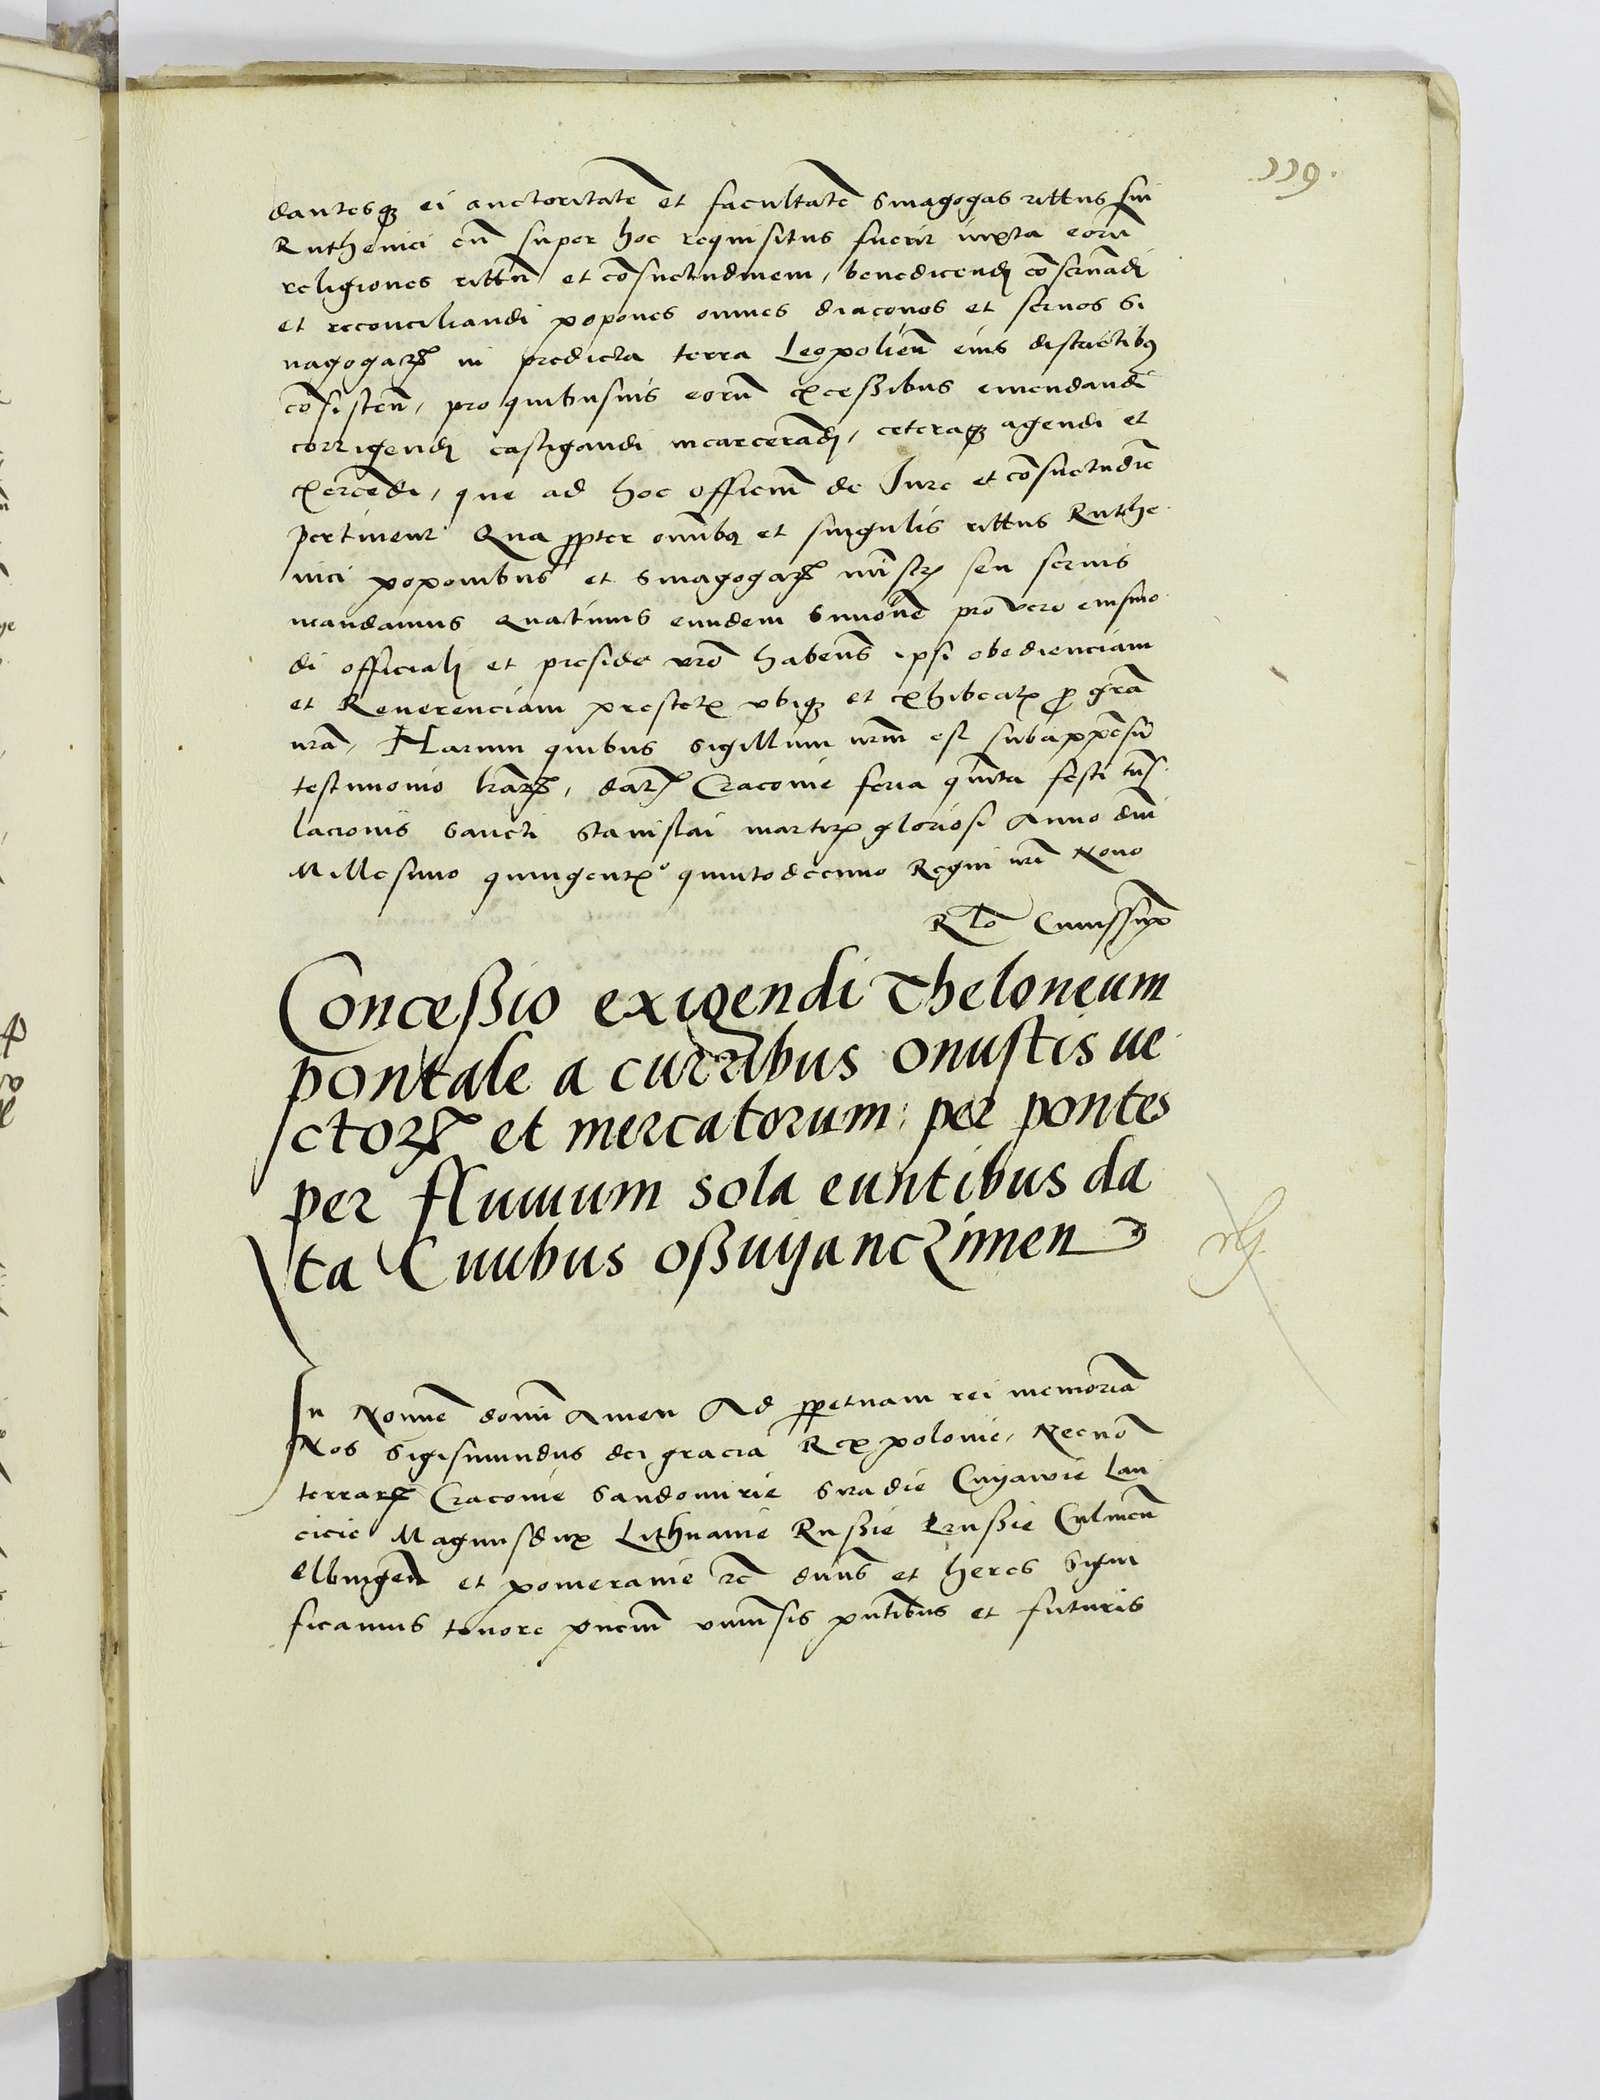 119.
dantesq ei auctoritatē et facultatē Sinagogas rittus sui
Ruthenici cū super hoc requisitus fuerit iuxta eorū
religiones rittū et cōsuetudinem, benedicendi cōseruādi
et reconciliandi popones omnes diaconos et seruos Si
nagogarꝝ in predicta terra Leopolień eius districtibꝫ
cōsisteń, pro quibusuis eorū excessibus emendandi
corrigendi castigandi incarcerādi, ceteraqꝫ agendi et
exercēdi, que ad hoc officiū de Iure et cōsuetudīe
pertinent Qua ꝓpter omībꝫ et singulis rittus Ruthe
nici poponibus et Sinagogarꝝ mīstris seu seruis
mandamus Quatinus eundem Simonē pro vero eiusmo
di officiali et preside vrō habeńs ipsi obedienciam
et Reuerenciam prestetis vbiqꝫ et exhibeatis ꝓ grā
nrā, Harum quibus Sigillum nrm̄ est subappēsū
testimonio lrārꝝ, datꝝ Cracouie feria quīta festi trās
lacionis Sancti Stanislai martiris gloriosi Anno dnī
Millesimo quingentesº quintodecimo Regni nrī Nono
Rlō
Concessio exigendi Theloneum
pontale a curribus onustis ue
ctorꝝ et mercatorum: per pontes
per fluuium sola euntibus da
ta Ciuibus osswyanczimen
In Nomīe domī Amen Ad ꝑpetuam rei memoriā
Nos Sigismundus dei gracia Rex polonie, Necnō
terrarꝝ Cracouie Sandomirie Siradie Cuyawie Lan
cicie Magnusdux Lithuanie Russie Prussie Culmeń
Elbingeń et pomeranie ꝛc dnūs et heres Signi
ficamus tenore pn̄cm̄ vniūsis pn̄tibus et futuris